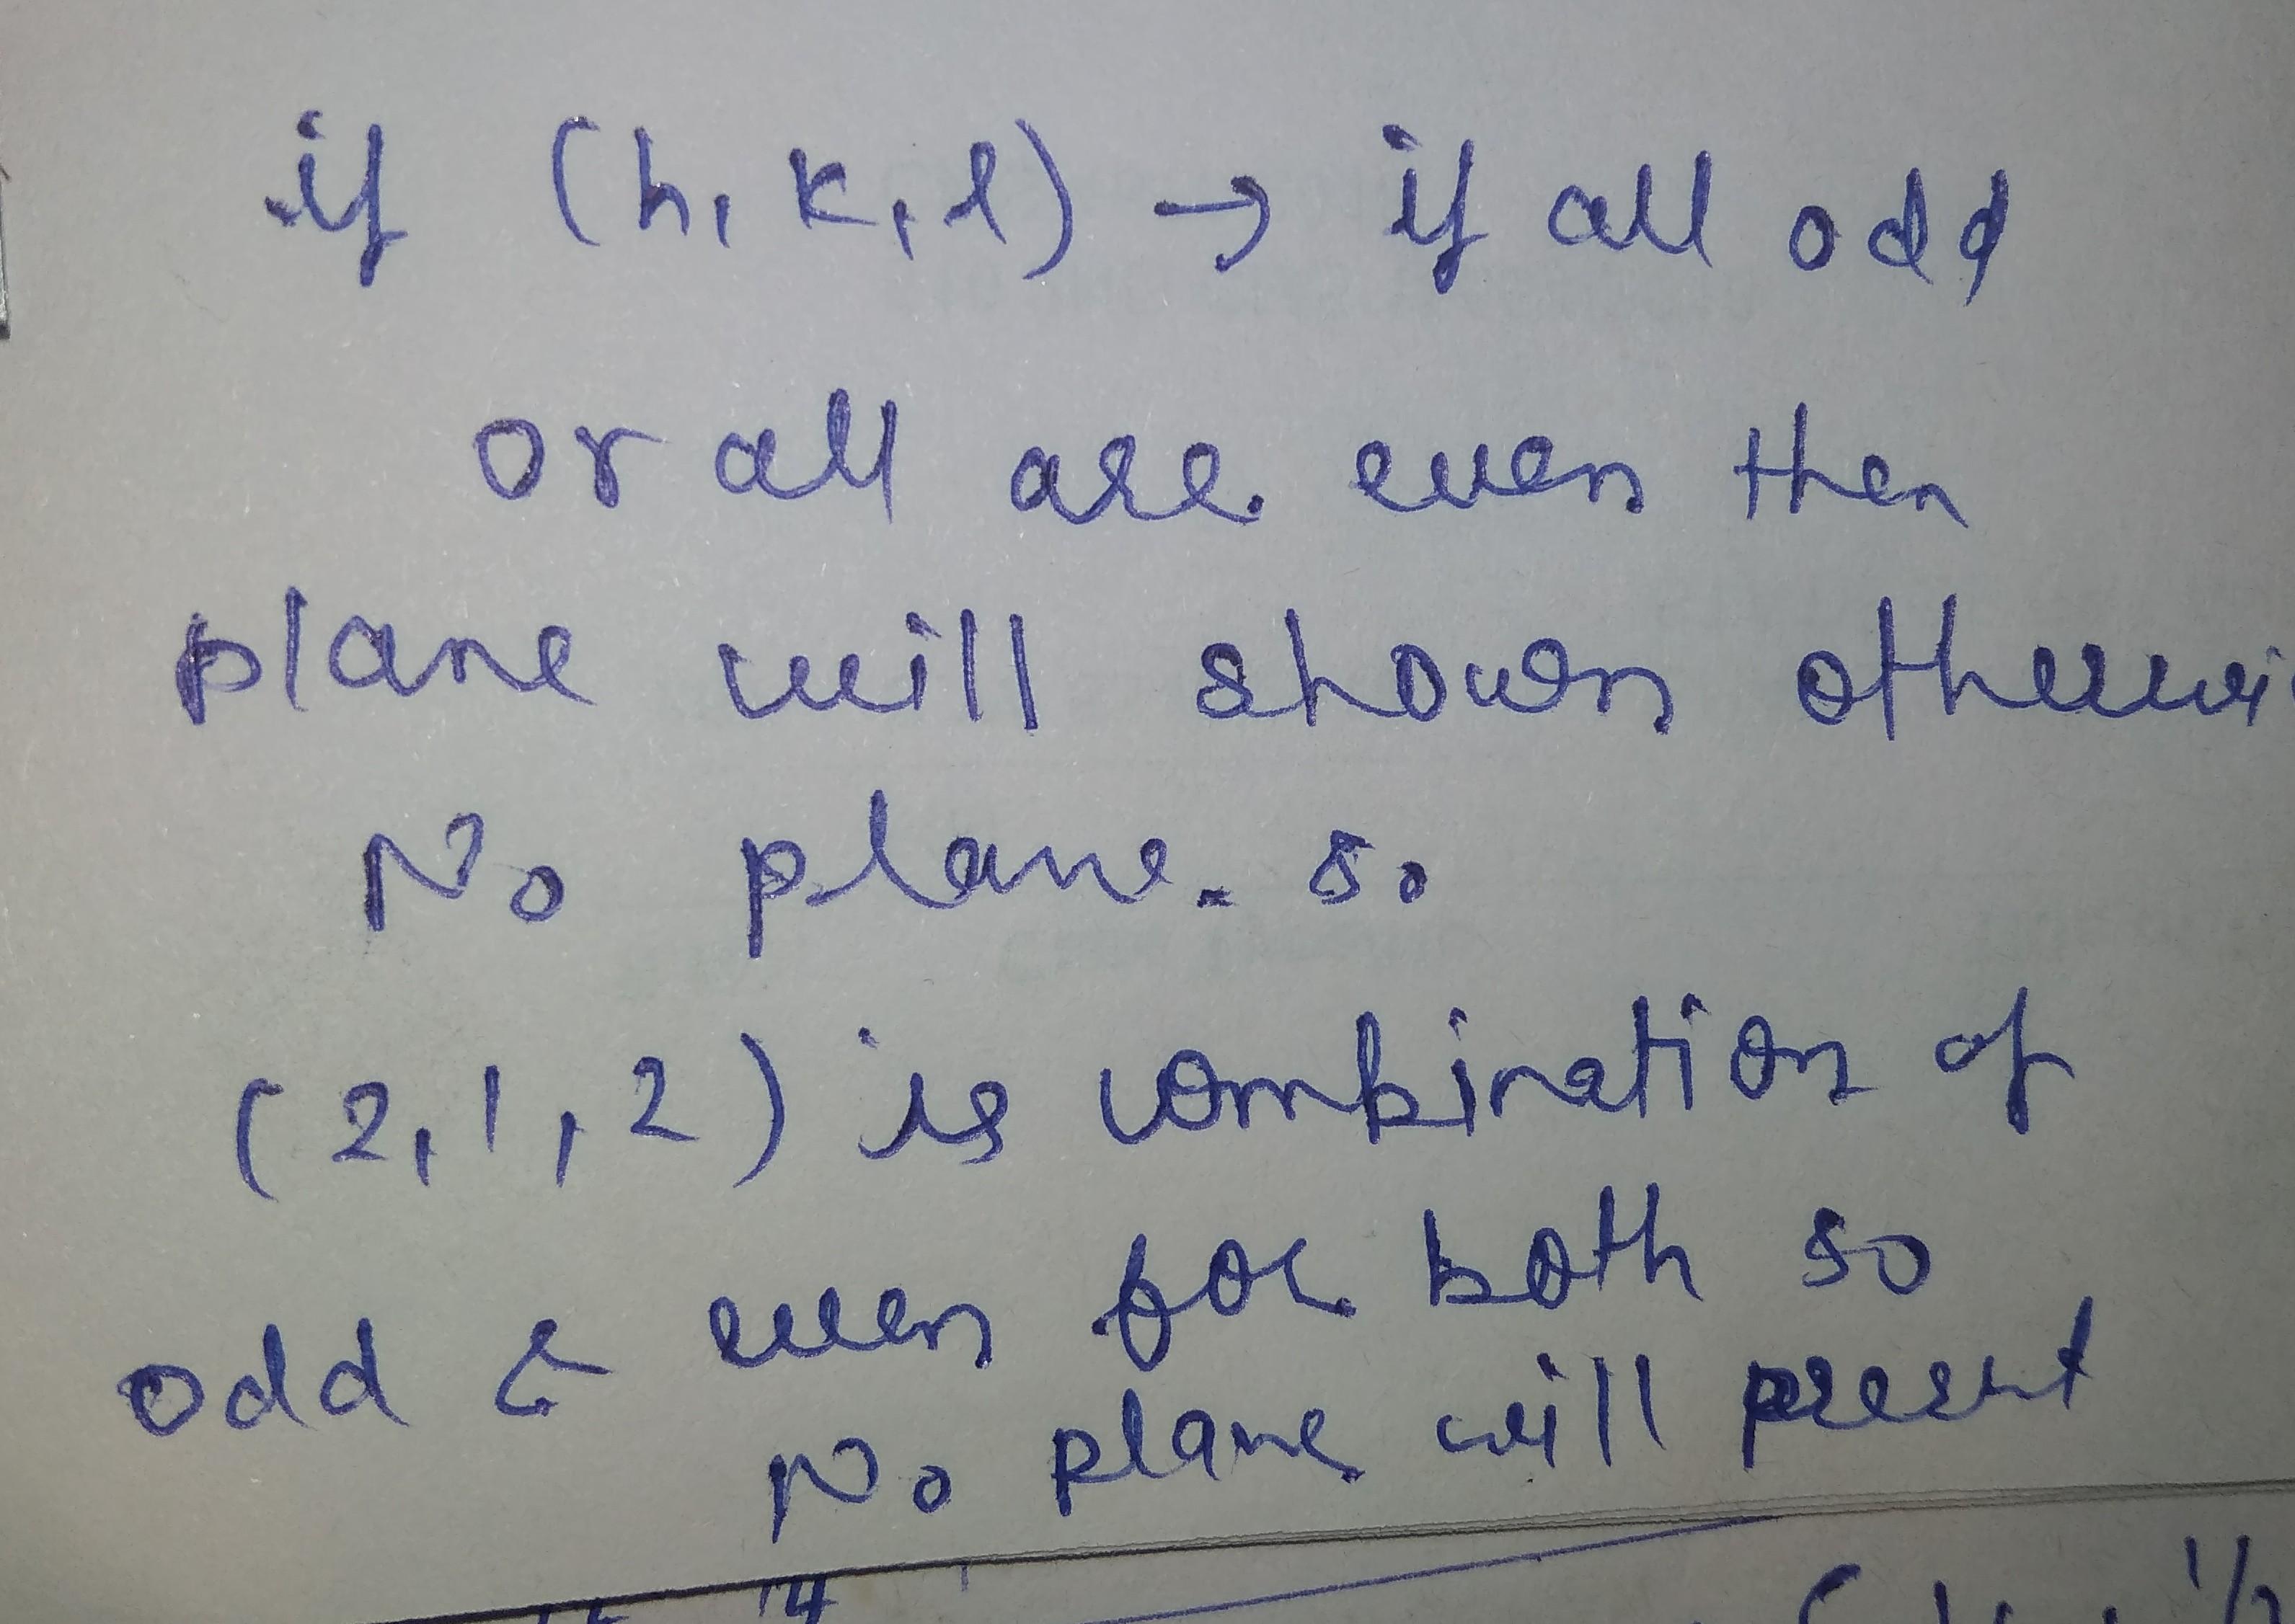 if (h, k, l) → if all odd
or all are even then
plane will shown otherwi
No plane. so
(2, 1, 2) is combination of
odd & even for both so
No plane will present
( 1/2